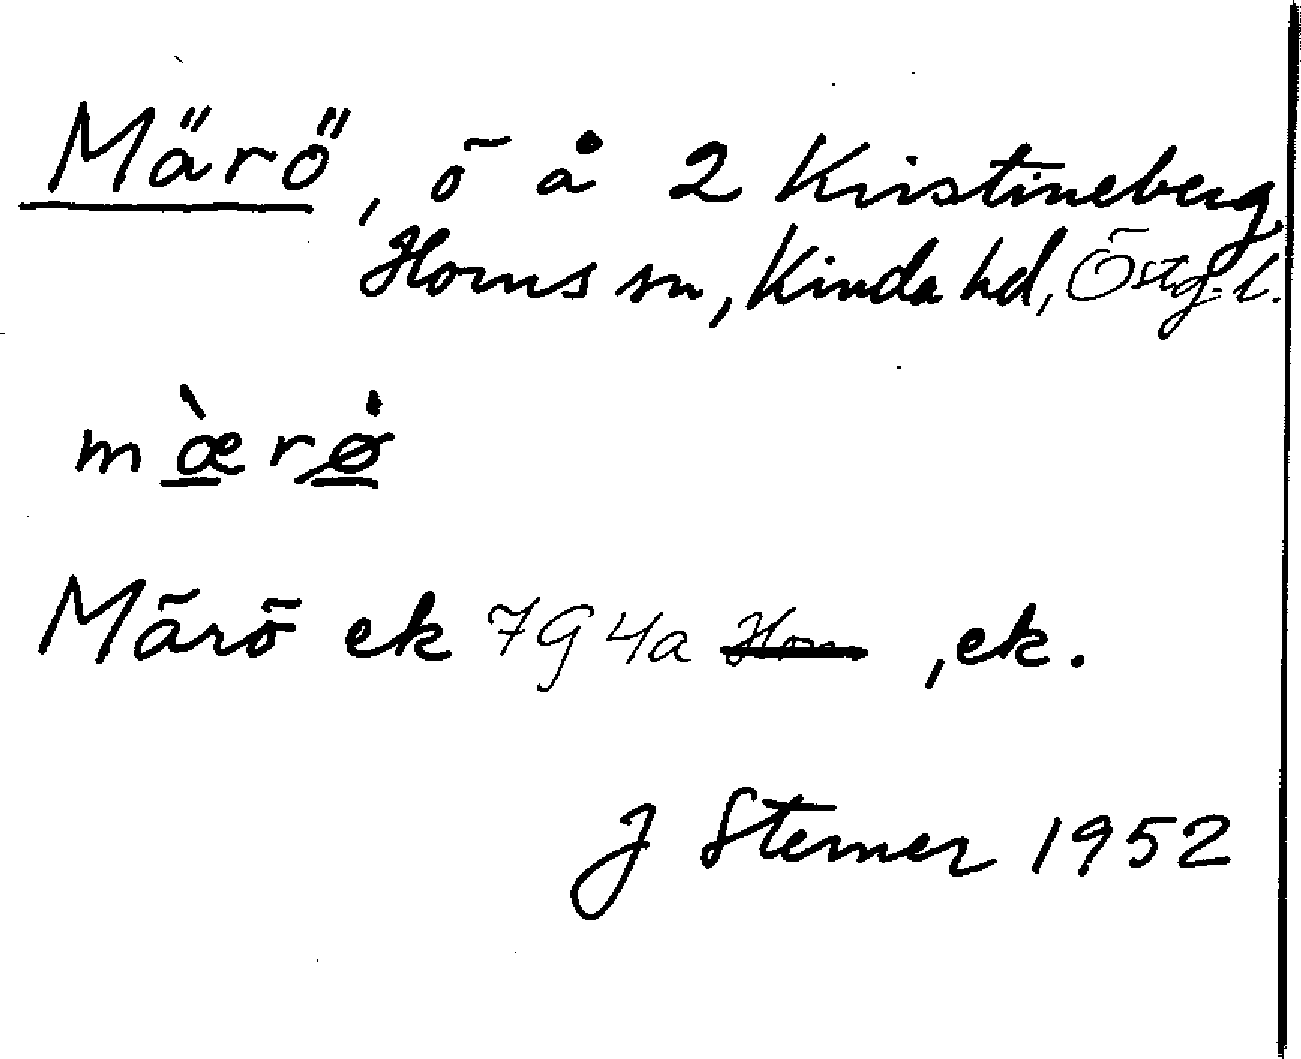 Märö, ö å 2 Kristineberg
Horns sn, Kinda hd, Östg. l.
mæ̀rø
Märö ek 7G 4a Horn, ek.
J Sterner 1952